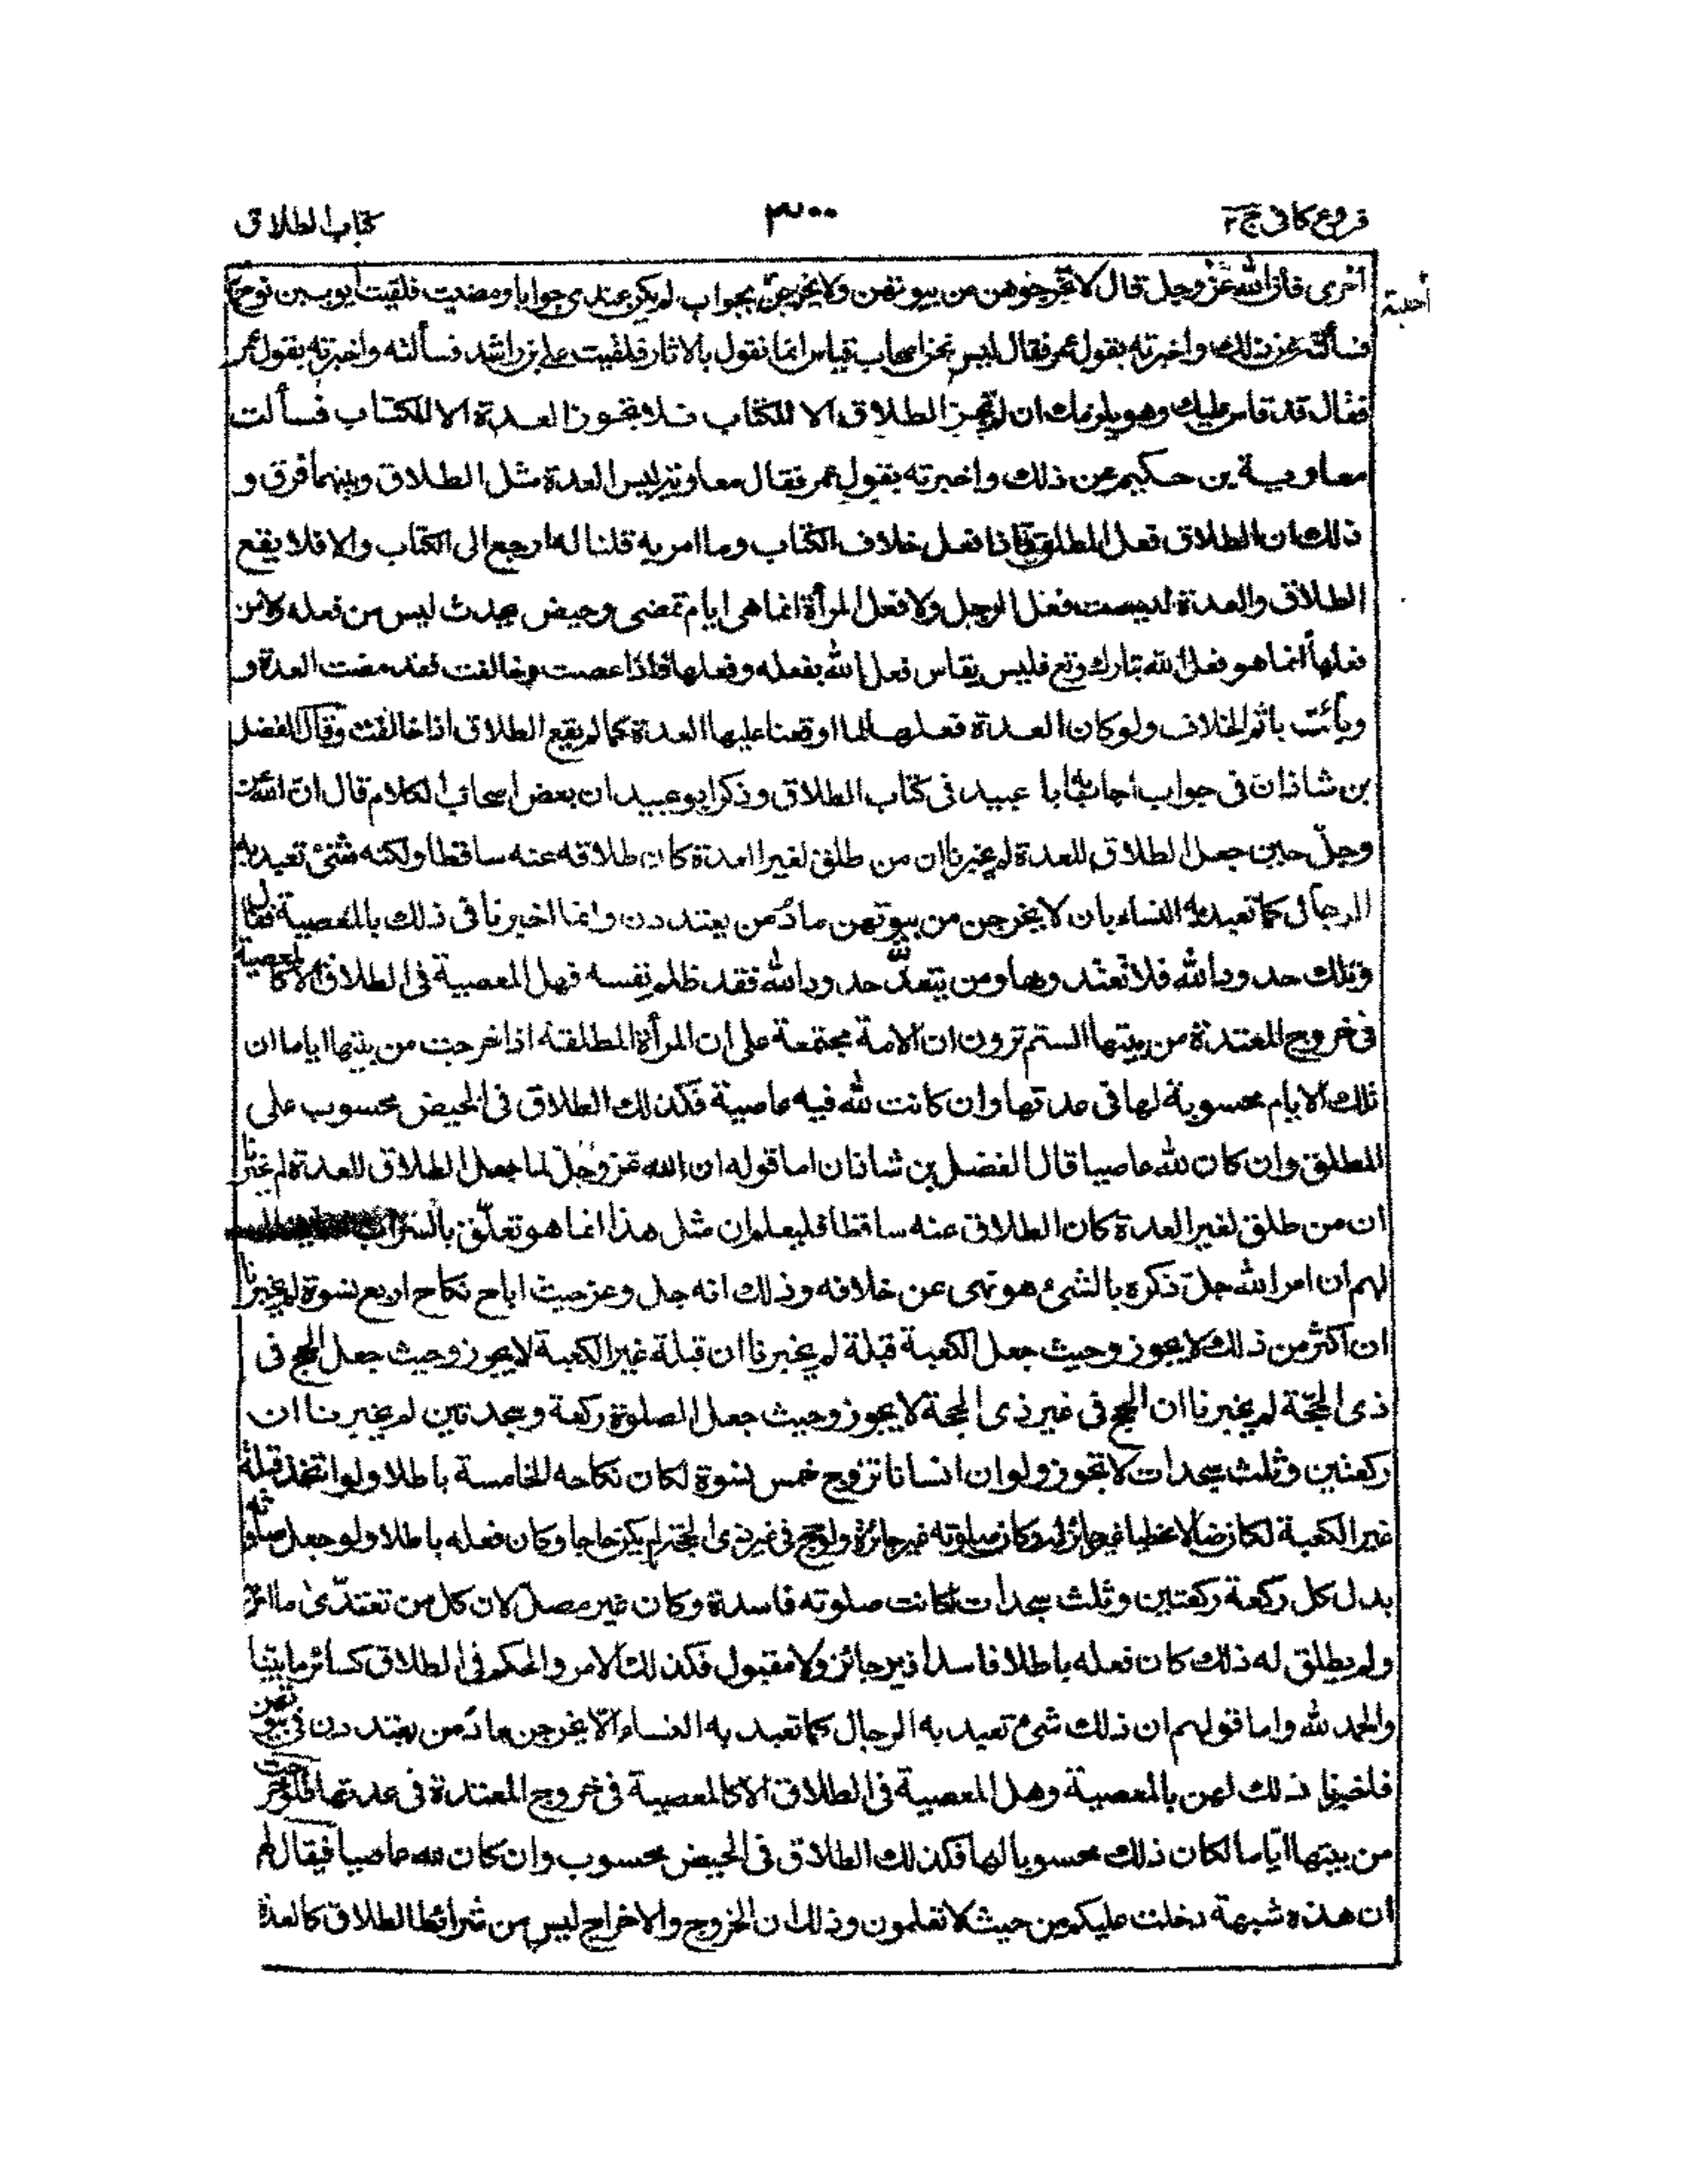 فروع كافى ج ٢
٣٠٠
كتاب الطلاق
اخرى فان الله عزّ وجل قال لا تخرجوهن من بيوتهن ولا يخرجن بجواب لم يكن عندى جوابا ومضيت فلقيت أيوب بن نوح
فسألته عن ذلك واخبرته بقول عمر فقال ليس نحن اصحاب قياس انما نقول بالاثار فلقيت على بن راشد فسألته واخبرته بقول عمر
فقال قد قاس عليك وهو يلزمك ان لم يجز الطلاق الا للكتاب فلا تجوز العدة الا للكتاب فسألت
معاوية بن حكيم عن ذلك واخبرته بقول عمر فقال معاوية ليس العدة مثل الطلاق وبينهما فرق و
ذلك ان الطلاق فعل المطلق فاذا فعل خلاف الكتاب وما امر به قلنا له ارجع الى الكتاب والا فلا يقع
الطلاق والعدة ليست فعل الرجل ولا فعل المرأة انما هى ايام تمضى وحيض يحدث ليس من فعله ولا من
فعلها انما هو فعل الله تبارك وتع فليس يقاس فعل الله بفعله وفعلها فاذا عصت وخالفت فقد مضت العدة و
وبائت باثم الخلاف ولو كان العدة فعلها لما اوقعنا عليها العدة كما لم يقع الطلاق اذا خالفت وقال الفضل
بن شاذان فى جواب اجاب به ابا عبيد فى كتاب الطلاق وذكر ابو عبيد ان بعض اصحاب الكلام قال ان الله عز
وجلّ حين جعل الطلاق للعدة لم يخبرنا ان من طلق لغير العدة كان طلاقه عنه ساقطا ولكنه شئ تعبد به
الرجال كما تعبد به النساء بان لا يخرجن من بيوتهن ما دُمن يعتددن وانما اخبرنا فى ذلك بالمعصية فقال
وتلك حدود الله فلا تعتدوها ومن يتعدّ حدود الله فقد ظلم نفسه فهل المعصية فى الطلاق الا كالمعصية
فى خروج المعتدة من بيتها الستم ترون ان الامة مجتمعة على ان المرأة المطلقة اذا خرجت من بيتها اياما ان
تلك الايام محسوبة لها فى عدتها وان كانت لله فيه عاصية فكذلك الطلاق فى الحيض محسوب على
المطلق وان كان لله عاصيا قال الفضل بن شاذان اما قوله ان الله عز وجلّ لما جعل الطلاق للعدة لم يخبرنا
ان من طلق لغير العدة كان الطلاق عنه ساقطا فليعلم ان مثل هذا انما هو تعلّق بالسراب
لهم ان امر الله جلّ ذكره بالشئ هو نهى عن خلافه وذلك انه جل وعز حيث اباح نكاح اربع نسوة لم يخبرنا
ان اكثر من ذلك لا يجوز وحيث جعل الكعبة قبلة لم يخبرنا ان قبلة غير الكعبة لا يجوز وحيث جعل الحج فى
ذى الحجّة لم يخبرنا ان الحج فى غير ذى الحجة لا يجوز وحيث جعل الصلوة ركعة وسجدتين لم يخبرنا ان
ركعتين وثلث سجدات لا تجوز ولو ان انسانا تزوج خمس نسوة لكان نكاحه للخامسة باطلا ولو اتخذ قبلة
غير الكعبة لكان ضالا مخطيا غير جائز له وكان صلوته غير جائزة ولو حج فى غير ذى الحجة لم يكن حاجا وكان فعله باطلا ولو جعل صلوته
بدل كل ركعة ركعتين وثلث سجدات لكانت صلوته فاسدة وكان غير مصل لان كل من تعدّى ما امر
ولم يطلق له ذلك كان فعله باطلا فاسدا غير جائز ولا مقبول فكذلك الامر والحكم فى الطلاق كسائر ما بينا
والحمد لله واما قولهم ان ذلك شئ تعبد به الرجال كما تعبد به النساء الّا يخرجن ما دُمن يعتددن فى بيوتهن
فاخبرنا ذلك لهن بالمعصية وهل المعصية فى الطلاق الا كالمعصية فى خروج المعتدة فى عدتها فلو خرجت
من بيتها ايّاما لكان ذلك محسوبا لها فكذلك الطلاق فى الحيض محسوب وان كان لله عاصيا فيقال لهم
ان هذه شبهة دخلت عليكم من حيث لا تعلمون وذلك ان الخروج والاخراج ليس من شرائط الطلاق كالعدة